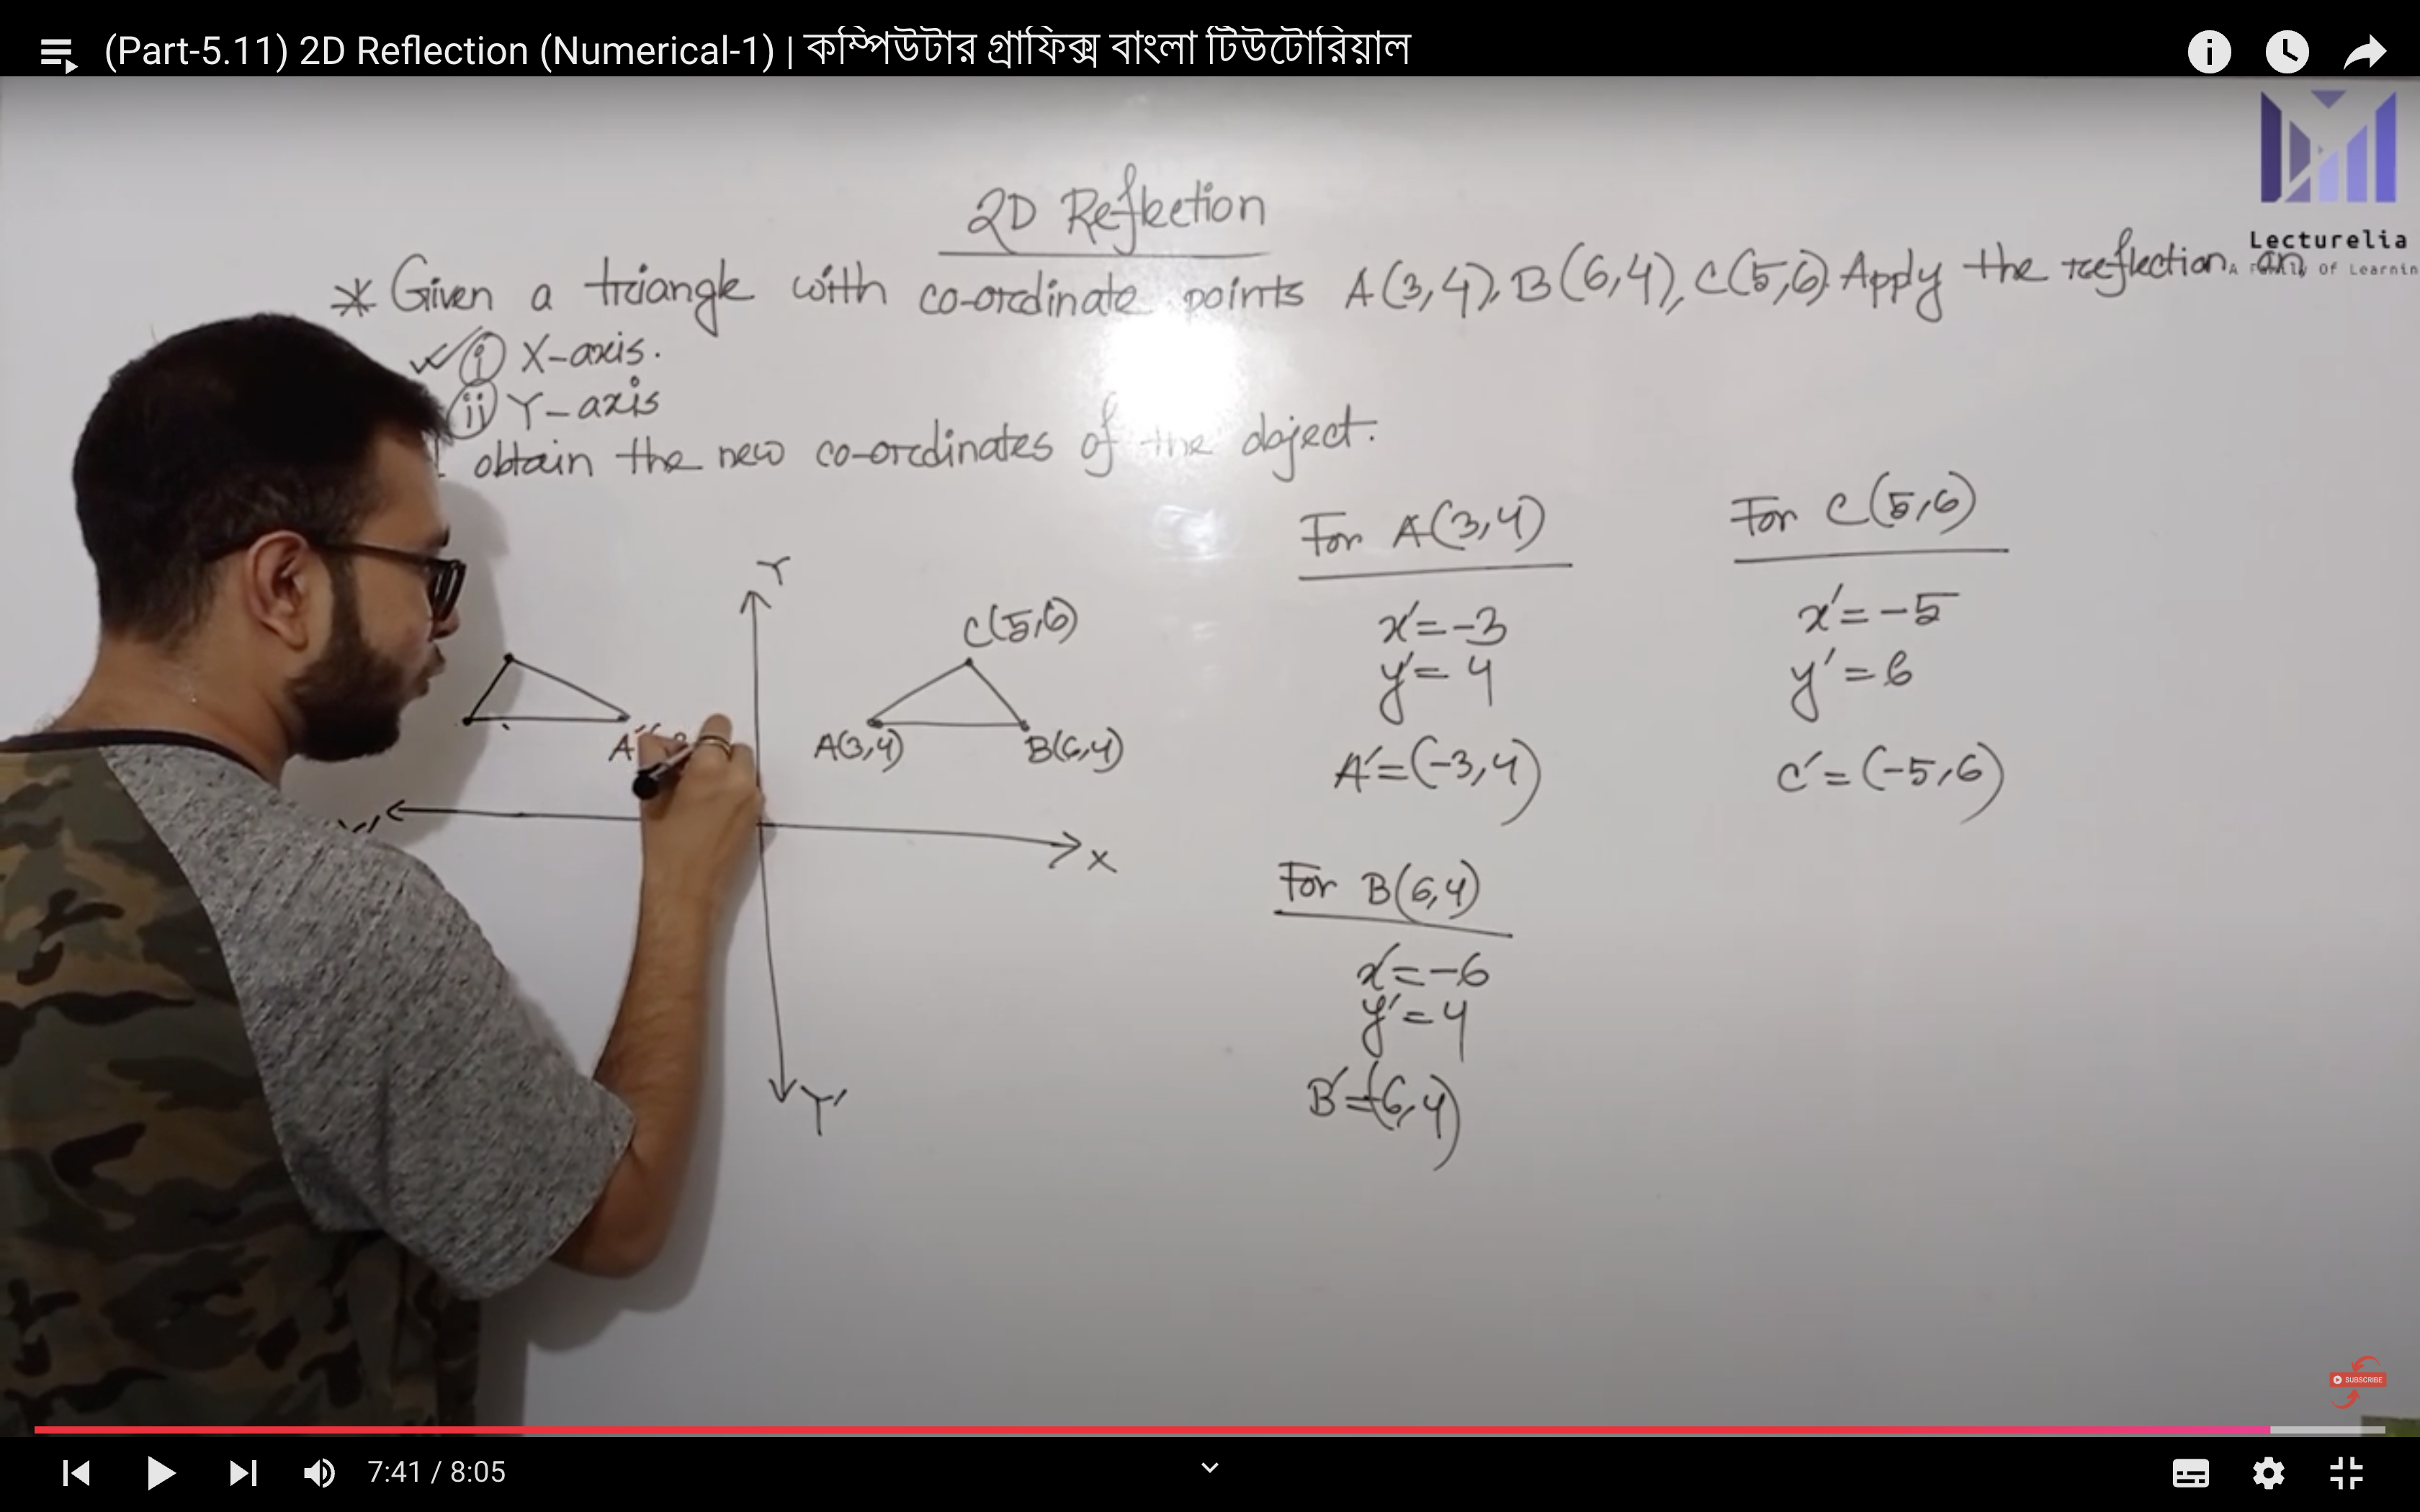 (Part-5.11) 2D Reflection (Numerical-1) | কম্পিউটার গ্রাফিক্স বাংলা টিউটোরিয়াল
Lecturelia
A Family Of Learnin
2D Reflection
* Given a triangle with co-ordinate points A(3,4), B(6,4), C(5,6). Apply the reflection on
✓ (i) X-axis.
(ii) Y-axis
obtain the new co-ordinates of the object.
Y
C(5,6)
A(3,4)
B(6,4)
A'(
X
Y'
For A(3,4)
x'=-3
y'=4
A'=(-3,4)
For B(6,4)
x'=-6
y'=4
B'=(-6,4)
For C(5,6)
x'=-5
y'=6
C'=(-5,6)
SUBSCRIBE
7:41 / 8:05